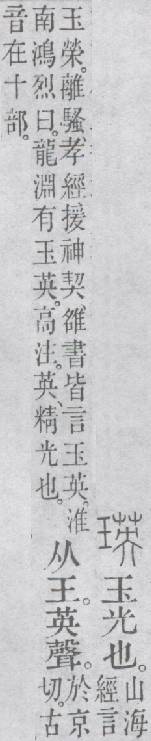 瑛玉光也。山海經言
玉榮。離騷孝經援神契、雒書皆言玉英。淮南鴻烈曰。龍淵有玉英。高注。英、精光也。从王。英聲。於京切。古
音在十部。